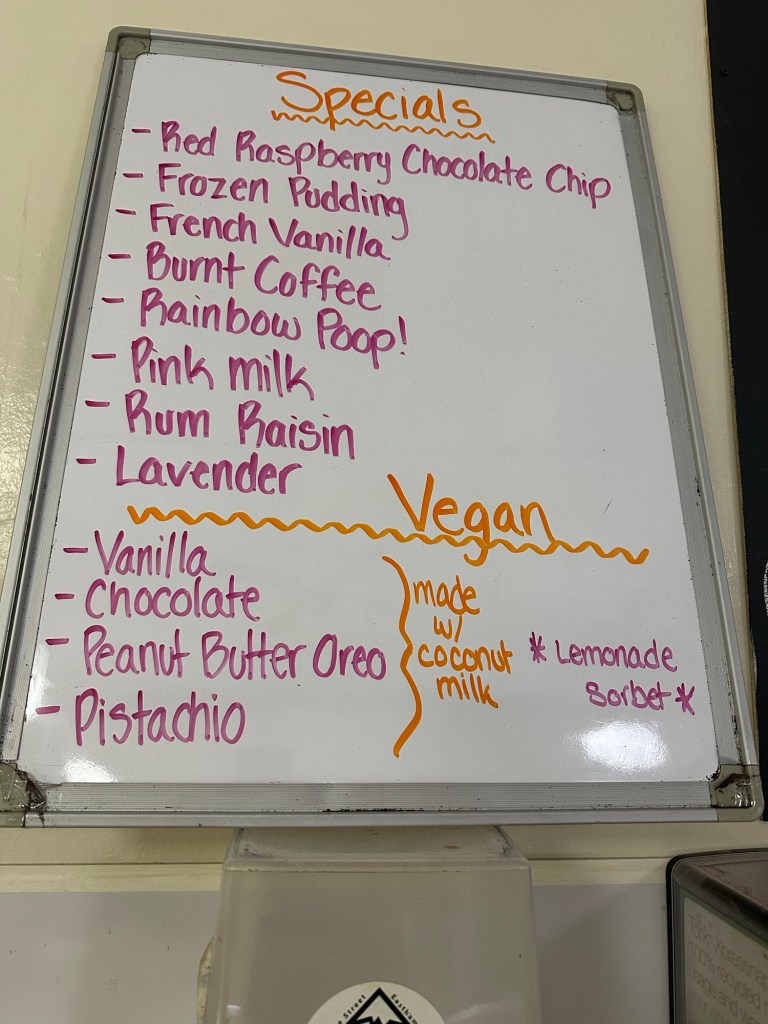 Specials
- Red Raspberry Chocolate Chip
- Frozen Pudding
- French Vanilla
- Burnt Coffee
- Rainbow Poop!
- Pink milk
- Rum Raisin
- Lavender
Vegan
- Vanilla
- Chocolate
- Peanut Butter Oreo
- Pistachio
made
w/
coconut
milk
* Lemonade
Sorbet *
Street
Eastham
100% recycled